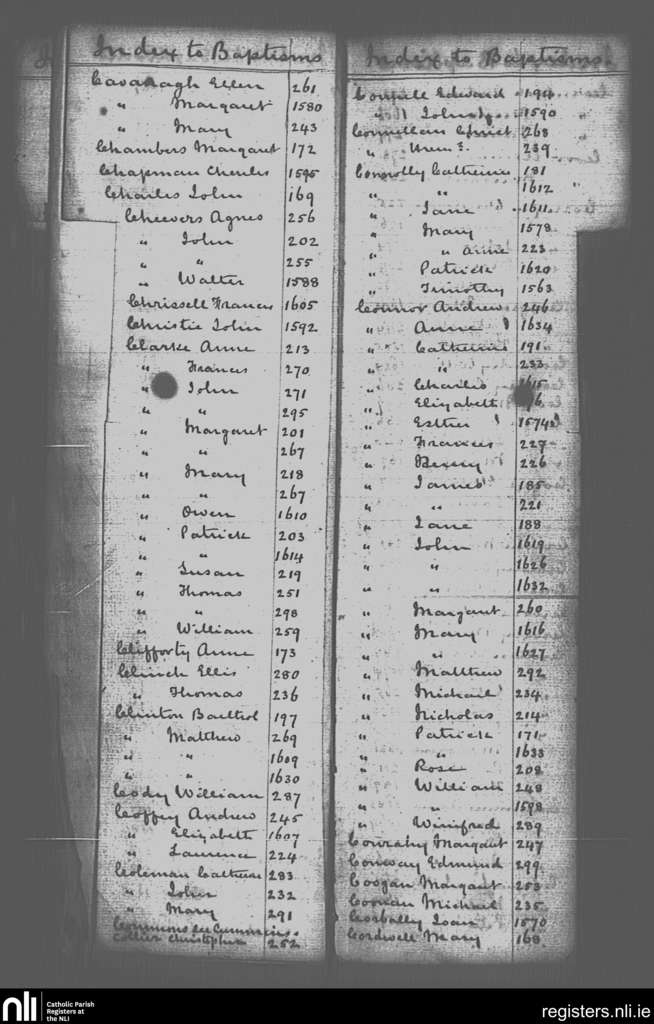 Index to Baptisms
Cavanagh Ellen 261
" Margaret 1580
" Mary 243
Chambers Margaret 172
Chapman Charles 1595
Charles John 169
Cheevers Agnes 256
" John 202
" " 255
" Walter 1588
Chrissell Frances 1605
Christie John 1592
Clarke Anne 213
" Frances 270
" John 271
" " 295
" Margaret 201
" " 267
" Mary 218
" " 267
" Owen 1610
" Patrick 203
" " 1614
" Susan 219
" Thomas 251
" " 298
" William 259
Clifforty Anne 173
Clinch Ellis 280
" Thomas 236
Clinton 197
" Matthew 269
" " 1609
" " 1630
Cody William 287
Coffey Andrew 245
" Elizabeth 1607
" Laurence 224
Coleman Catherine 283
" John 232
" Mary 291
Commons see Cummins.
Collier Christopher 252
Index to Baptisms.
Edward 194
" John 1590
268
" 239
Connolly Catherine 181
" " 1612
" Jane 1611
" Mary 1578
" " Anne 223
" Patrick 1620
" Timothy 1563
Connor Andrew 246
" Anne 1634
" Catherine 191
" " 233
" Charles
" Elizabeth
" Esther 1574
" Frances 227
" Henry 226
" James 185
" " 221
" Jane 188
" John 1619
" " 1626
" " 1632
" Margaret 260
" Mary 1616
" " 1627
" Matthew 292
" Michael 234
" Nicholas 214
" Patrick 171
" " 1633
" Rose 208
" William 248
" " 1598
" Winifred 289
Margaret 247
Conway Edmund 299
Coogan Margaret 253
Coonan Michael 235
Corbally Joan 1570
Cordwell Mary 168
nli
Catholic Parish
Registers at
the NLI
registers.nli.ie